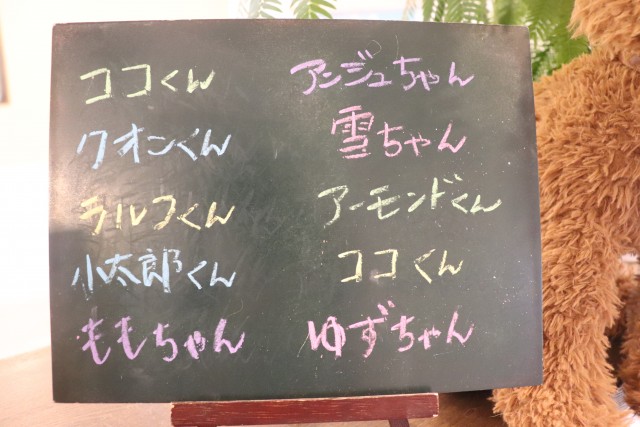 ココくん
クオンくん
ラルフくん
小太郎くん
ももちゃん
アンジュちゃん
雪ちゃん
アーモンドくん
ココくん
ゆずちゃん